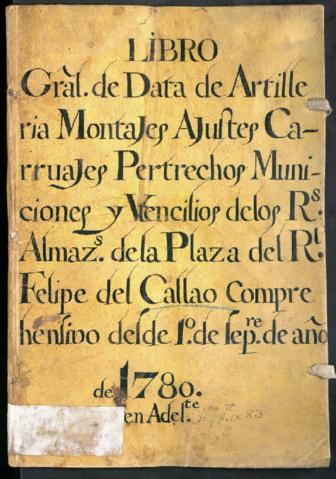 LIBRO
Grãl. de Data de Artille
ria Montajes Ajustes Ca-
rruajes Pertrechos Muni-
ciones y Vtencilios delos R.s
Almaz.s de la Plaza del R.l
Felipe del Callao Compre
henſivo deſde 1.º de ſep.re de año
de 1780.
en Adel.te